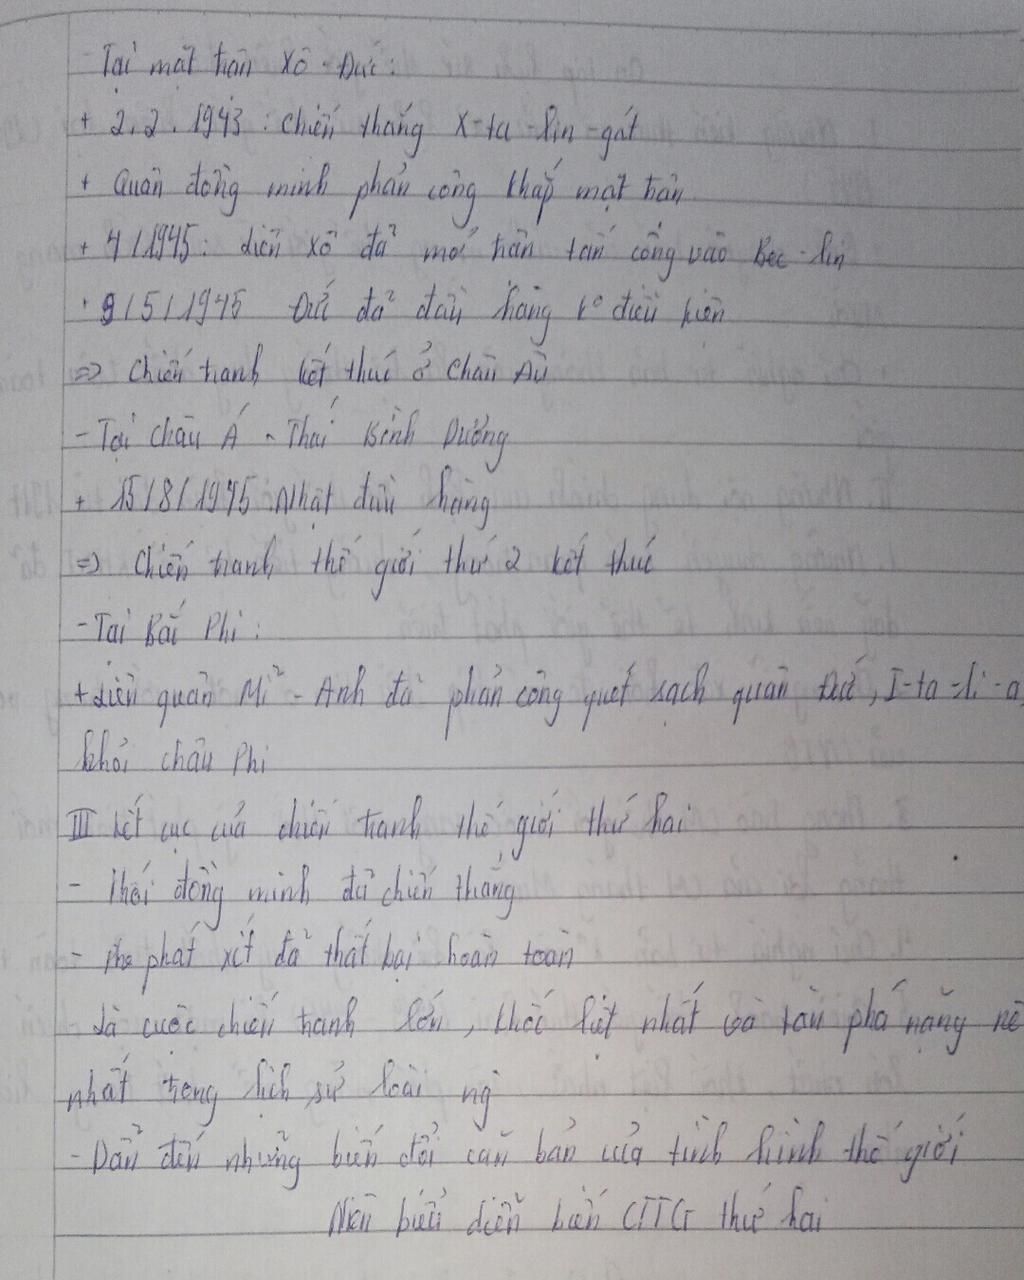 - Tại mặt trận Xô - Đức:
+ 2.2.1943: chiến thắng X-ta-lin-gát
+ Quân đồng minh phản công khắp mặt trận
+ 4/1945: Liên Xô đã mở trận tấn công vào Béc-lin
+ 9/5/1945 Đức đã đầu hàng k° điều kiện
=> Chiến tranh kết thúc ở Châu Âu
- Tại Châu Á - Thái Bình Dương
+ 15/8/1945: Nhật đầu hàng
=> Chiến tranh thế giới thứ 2 kết thúc
- Tại Bắc Phi:
+ Liên quân Mĩ - Anh đã phản công quét sạch quân Đức, I-ta-li-a,
khỏi châu Phi
III Kết cục của chiến tranh thế giới thứ hai
- Khối đồng minh đã chiến thắng
- Phe phát xít đã thất bại hoàn toàn
- Là cuộc chiến tranh lớn, khốc liệt nhất và tàn phá nặng nề
nhất trong lịch sử loài ng
- Dẫn đến những biến đổi căn bản của tình hình thế giới
Niên biểu diễn biến CTTG thứ hai